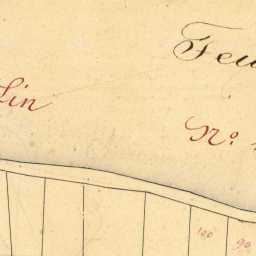 Feu
Lin
N.o
100
90